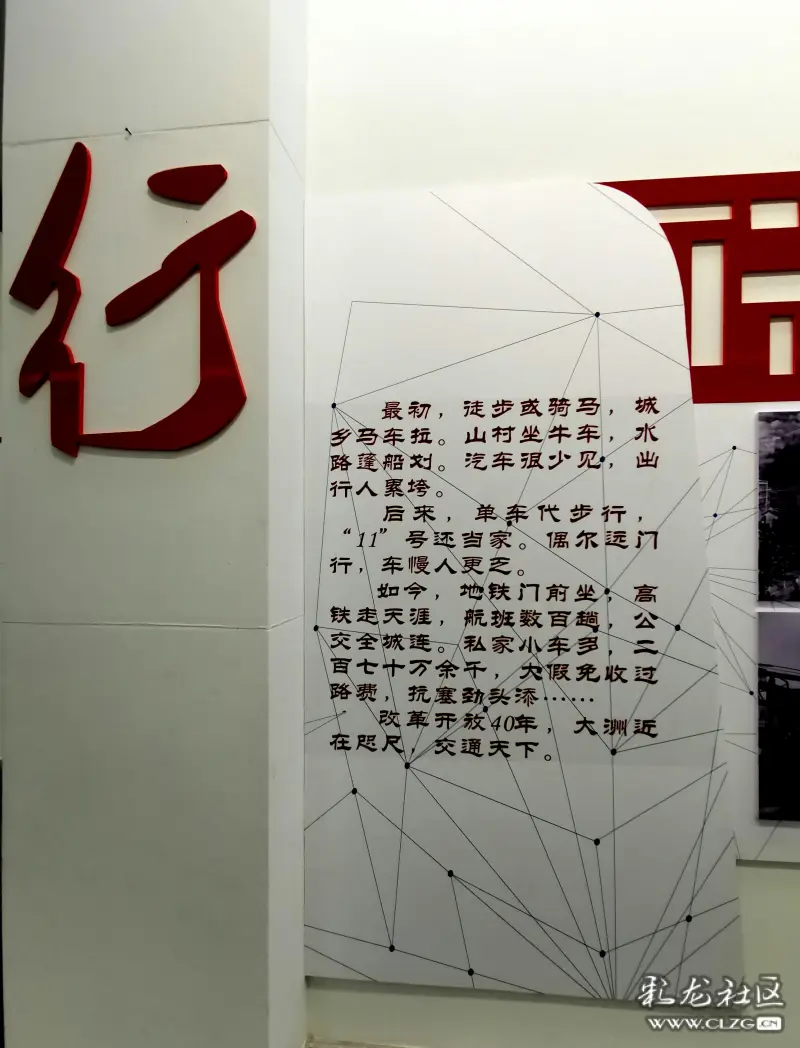 行
最初，徒步或骑马，城
乡马车拉。山村坐牛车，水
路篷船划。汽车很少见，出
行人累垮。
后来，单车代步行，
“11”号还当家。偶尔远门
行，车慢人更乏。
如今，地铁门前坐，高
铁走天涯，航班数百趟，公
交全城连。私家小车多，二
百七十万余千，大假免收过
路费，抗塞劲头添……
改革开放40年，大洲近
在咫尺，交通天下。
彩龙社区
WWW.CLZG.CN